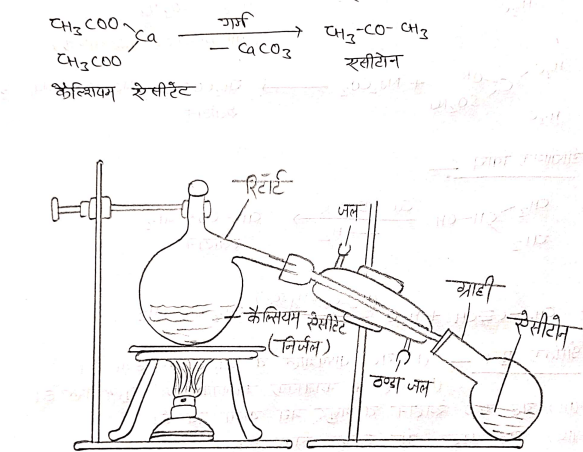 CH3COO
CH3COO
Ca
गर्म
- CaCO3
CH3-CO-CH3
कैल्शियम ऐसीटेट
एसीटोन
रिटॉर्ट
जल
ग्राही
ऐसीटोन
कैल्सियम ऐसीटेट
(निर्जल)
ठण्डा जल